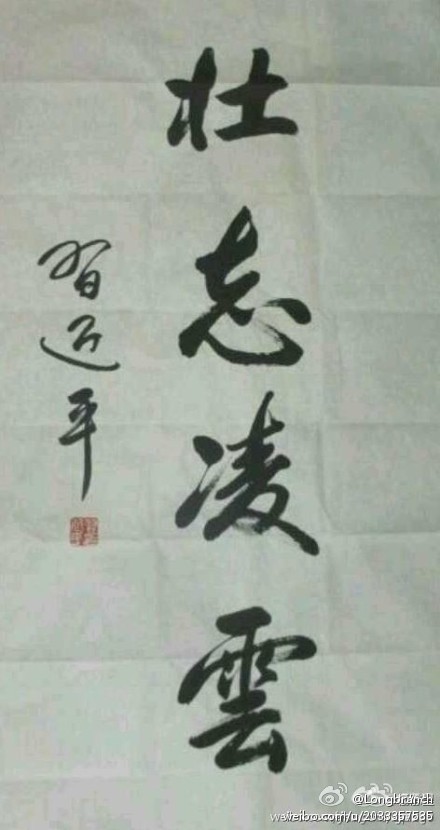 壮志凌雲
习近平
@Longbranch
weibo.com/u/2033357535